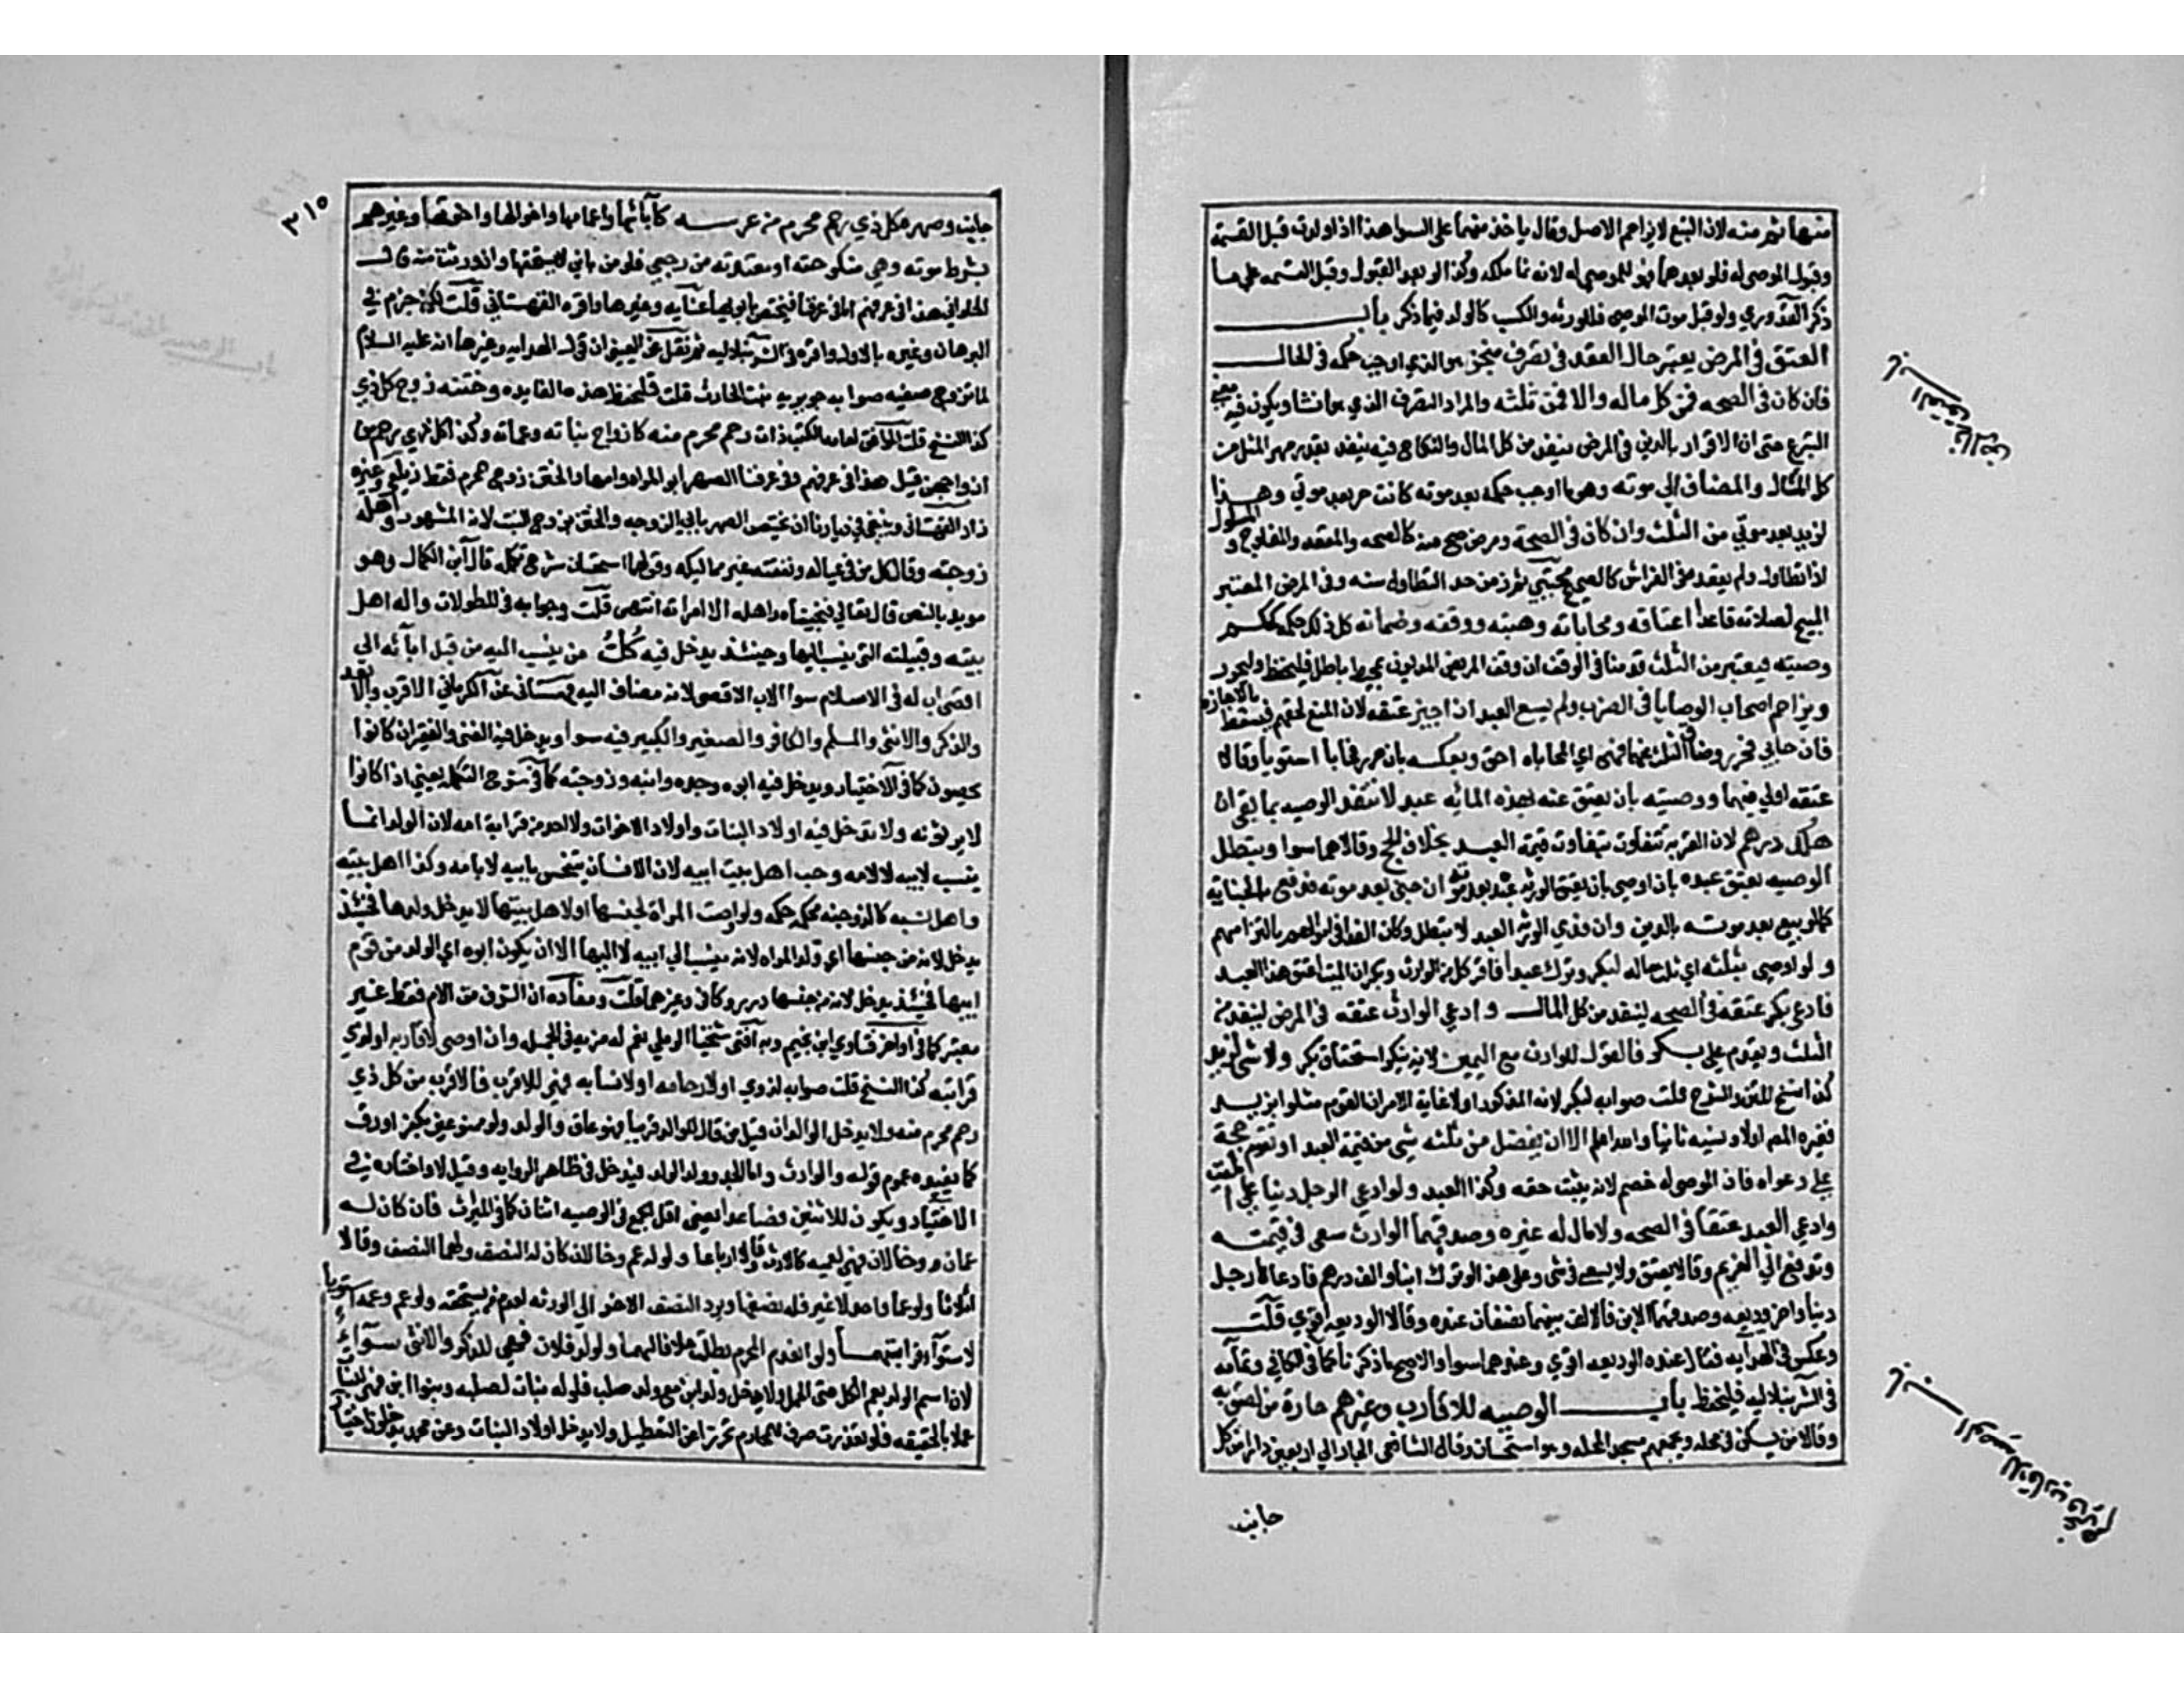 منها ثم منه لان التبع لا يزاحم الاصل وقالا ياخذ منهما على السوا هذا اذا ولدت قبل القسمة
وقبول الموصى له فلو بعدهما فهو للموصى له لانه نما ملكه وكذا لو بعد القبول وقبل القسمه على ما
ذكر القدوري ولو قبل موت الموصي فللورثه والكسب كالولد فيما ذكر باب
العتق في المرض يعتبر حال العقد في تصرف منجز هو الذي اوجب حكمه في الحال
فان كان في الصحه فمن كل ماله والا فمن ثلثه والمراد التصرف الذي هو انشا ويكون فيه معنى
التبرع حتى ان الاقرار بالدين في المرض ينفد من كل المال والنكاح فيه ينفد بقدر مهر المثل من
كل المال والمضاف الى موته وهو ما اوجب حكمه بعد موته كانت حر بعد موتي وهذا
لزيد بعد موتي من الثلث وان كان في الصحة ومرض صح منه كالصحه والمقعد والمفلوج والمسلول
اذا تطاول ولم يقعده في الفراش كالصحيح مجتبي ثم رمز حد التطاول سنه وفي المرض المعتبر
المبيح لصلاته قاعدا اعتاقه ومحاباته وهبته ووقفه وضمانه كل ذلك حكمه كحكم
وصيته فيعتبر من الثلث قدمنا في الوقف ان وقف المريض المديون بمحيط باطل فليحفظ وليحرر
ويزاحم اصحاب الوصايا في الضرب ولم يسع العبد ان اجيز عتقه لان المنع لحقهم فيسقط بالاجازه
فان حابى فحرر وضاق الثلث عنهما فهي اي المحاباه احق وبعكسه بان حرر فحابا استويا وقالا
عتقه اولى فيهما ووصيته بان يعتق عنه بهذه المائه عبد لا تنفد الوصيه بما بقى ان
هلك درهم لان القربه تتفاوت بتفاوت قيمة العبد بخلاف الحج وقالا هما سوا وتبطل
الوصيه بعتق عبده بان اوصى بان يعتق الورثه عبده بعد موته ان جنى بعد موته فدفع بالجنايه
كما لو بيع بعد موته بالدين وان فدى الورثه العبد لا تبطل وكان الفدا في اموالهم بالتزامهم
ولو اوصى بثلثه اي ثلث ماله لبكر وترك عبدا فاقر كل من الوارث وبكر ان الميت اعتق هذا العبد
فادعى بكر عتقه في الصحه لينفد من كل المال وادعى الوارث عتقه في المرض لينفد من
الثلث ويقدم على بكر فالقول للوارث مع اليمين لانه ينكر استحقاق بكر ولا شي لزيد
كذا نسخ المتن والشرح قلت صوابه لبكر لانه المذكور اولا غاية الامر ان القوم مثلوا بزيد
فغيره المص اولا ونسيه ثانيا والله اعلم الا ان يفضل من ثلثه شي من قيمة العبد او تقوم حجة
على دعواه فان الموصى له خصم لانه يثبت حقه وكذا العبد ولو ادعى الرجل دينا على الميت
وادعى العبد عتقا في الصحه ولا مال له غيره وصدقهما الوارث سعى في قيمته
وتدفع الى الغريم وقالا يعتق ولا يسعى في شي وعلى هذا لو ترك ابنا والف درهم فادعاها رجل
دينا واخر وديعه وصدقهما الابن فالالف بينهما نصفان عنده وقالا الوديعه اقوى قلت
وعكس في الهدايه فقال عنده الوديعه اقوى وعندهما سوا والاصح ما ذكرنا كما في الكافي وتمامه
في الشرنبلاليه فليحفظ باب الوصيه للاقارب وغيرهم جاره من لصق به
وقالا من يسكن في محله ويجمعهم مسجد المحله وهو استحسان وقال الشافعي الجار الى اربعين دارا من كل
جانب
باب العتق في المرض
باب الوصيه للاقارب وغيرهم
٣١٥
جانب وصهره كل ذي رحم محرم من عرسه كآبائها واعمامها واخوالها واخوتها وغيرهم
بشرط موته وهي منكوحته او معتدته من رجعي فلو من بائن لا يستحقها وان ورثت منه قال
الحلواني هذا في عرفهم اما في عرفنا فيختص بابويها عنايه وغيرها واقره القهستاني قلت لكن جزم في
البرهان وغيره بالاول واقره في الشرنبلاليه ثم نقل عن العيني ان قول الهدايه وغيرها انه عليه السلام
لما تزوج صفيه صوابه جويريه بنت الحارث قلت فلتحفظ هذه الفايده وختنه زوج كل ذي
كذا النسخ قلت الموافق لعامه الكتب ذات رحم محرم منه كازواج بناته وعماته وكذا كل ذي رحم من
ازواجهن قيل هذا في عرفهم وفي عرفنا الصهر ابو المراه وامها والختن زوج المحرم فقط زيلعي وغيره
زاد القهستاني وينبغي في ديارنا ان يختص الصهر بابي الزوجه والختن بزوج البنت لانه المشهور واهله
زوجته وقالا كل من في عياله ونفقته غير مماليكه وقولهما استحسان شرح تكمله قال ابن الكمال وهو
مويد بالنص قال تعالى فنجيناه واهله الا امراته انتهى قلت وجوابه في المطولات واله اهل
بيته وقبيلته التي ينسب اليها وحينئذ يدخل فيه كل من ينسب اليه من قبل ابائه الى
اقصى اب له في الاسلام سوا الاب الاقصى لانه مضاف اليه قهستاني عن الكرماني الاقرب والابعد
والذكر والانثى والمسلم والكافر والصغير والكبير فيه سوا ويدخل فيه الغني والفقير ان كانوا
يحصون كما في الاختيار ويدخل فيه ابوه وجده وابنه وزوجته كما في شرح التكمله يعني اذا كانوا
لا يرثونه ولا يدخل فيه اولاد البنات واولاد الاخوات ولا احد من قرابة امه لان الولد انما
ينسب لابيه لا لامه وجنسه اهل بيت ابيه لان الانسان يتجنس بابيه لا بامه وكذا اهل بيته
واهل نسبه كاله وجنسه فحكمه حكمه ولو اوصت المراة لجنسها او لاهل بيتها لا يدخل ولدها فحينئذ
يدخل لانه من جنسها اي ولد المراه لانه ينسب الى ابيه لا اليها الا ان يكون ابوه اي الولد من قوم
ابيها فحينئذ يدخل لانه من جنسها درر وكافي وغيرهما قلت ومفاده ان الشرف من الام فقط غير
معتبر كما في اواخر فتاوي ابن نجيم وبه افتى شيخنا الرملي نعم له مزية في الجمله وان اوصى لاقاربه او لذوي
قرابته كذا النسخ قلت صوابه لذوي او لارحامه او لانسابه فهي للاقرب فالاقرب من كل ذي
رحم محرم منه ولا يدخل الوالدان قيل من قال للوالد قريبا فهو عاق والولد ولو ممنوعين بكفر او رق
كما يفيده عموم قوله والوارث واما الجد وولد الولد فيدخل في ظاهر الروايه وقيل لا واختاره في
الاختيار ويكون للاثنين فصاعدا يعني اقل الجمع في الوصيه اثنان كما في الميراث فان كان له
عمان وخالان فهي لعميه كالارث وقالا ارباعا ولو له عم وخالان كان له النصف ولهما النصف وقالا
اثلاثا ولو عما واحدا لا غير فله نصفها ويرد النصف الاخر الى الورثه لعدم من يستحقه ولو عم وعمه استويا
لاستواء قرابتهما ولو انعدم المحرم بطلت خلافا لهما ولولد فلان فهي للذكر والانثى سواء
لان اسم الولد يعم الكل حتى الحمل ولا يدخل ولد ابن مع ولد صلب فلو له بنات لصلبه وبنوا ابن فهي للبنات
عملا بالحقيقه فلو تعذرت صرف للمجاز تحرزا عن التعطيل ولا يدخل اولاد البنات وعن محمد يدخلون اختيار